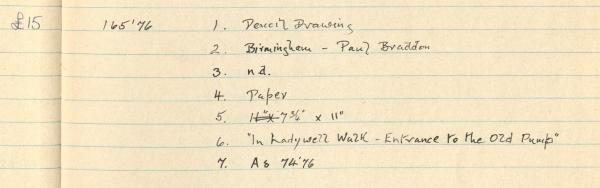 £15 165'76 1. Pencil Drawing
2. Birmingham - Paul Braddon
3. n.d.
4. Paper
5. 11" x 7 3/4" x 11"
6. "In Ladywell Walk - Entrance to the Old Pump"
7. As 74'76